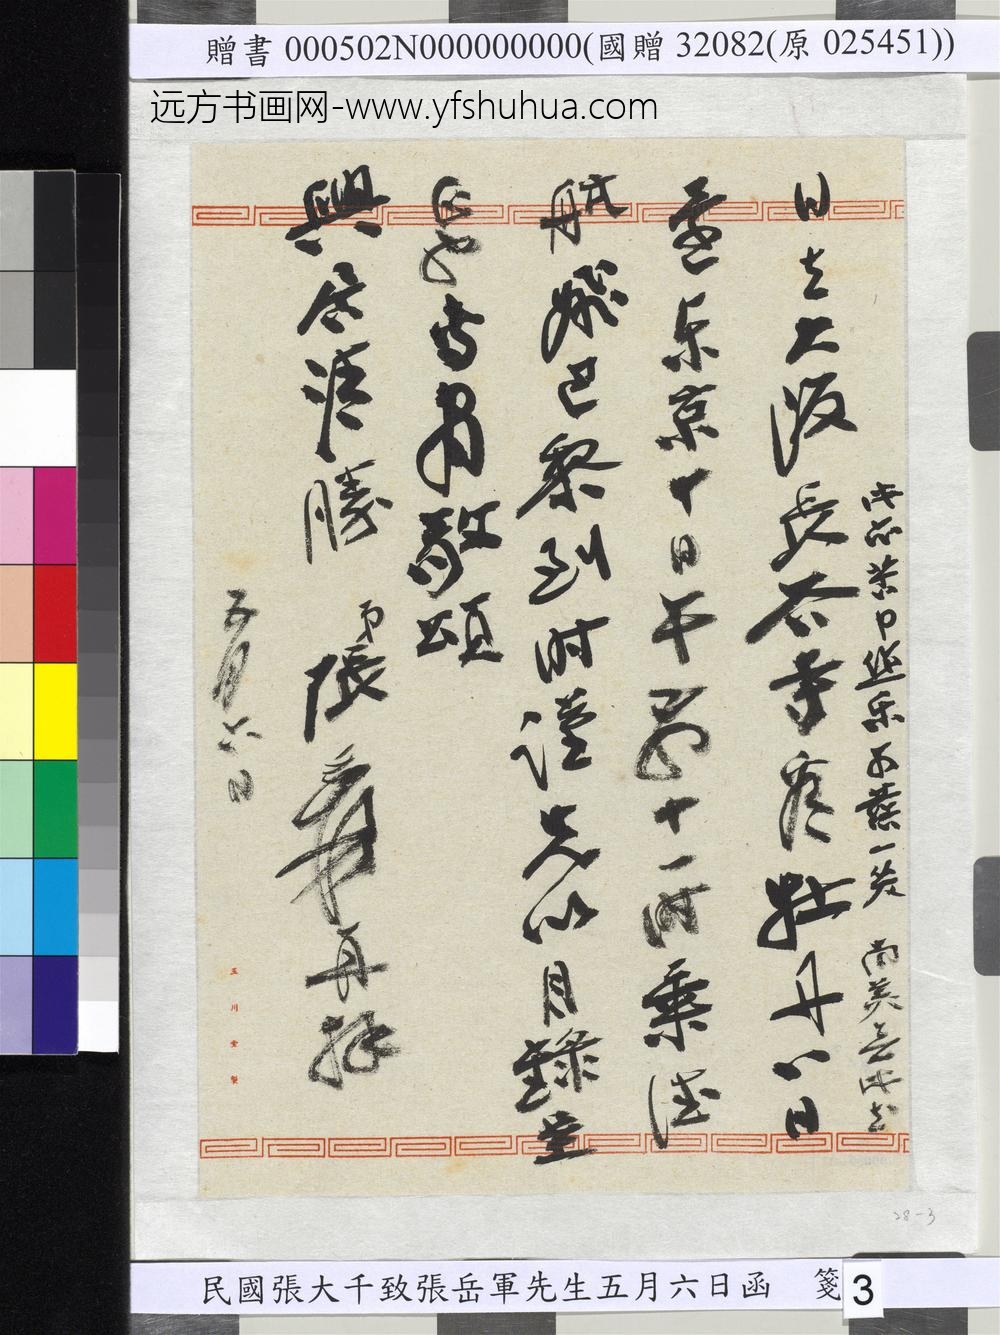 贈書 000502N000000000(國贈 32082(原 025451))
远方书画网-www.yfshuhua.com
南美無此
日去大阪長谷寺賞牡丹八日
還东京十日午十一时乘法
航飛巴黎到时謹先以目錄呈
專肅敬頌
興居清勝 弟張爰再拜
五月六日
玉川堂製
28-3
民國張大千致張岳軍先生五月六日函 箋 3